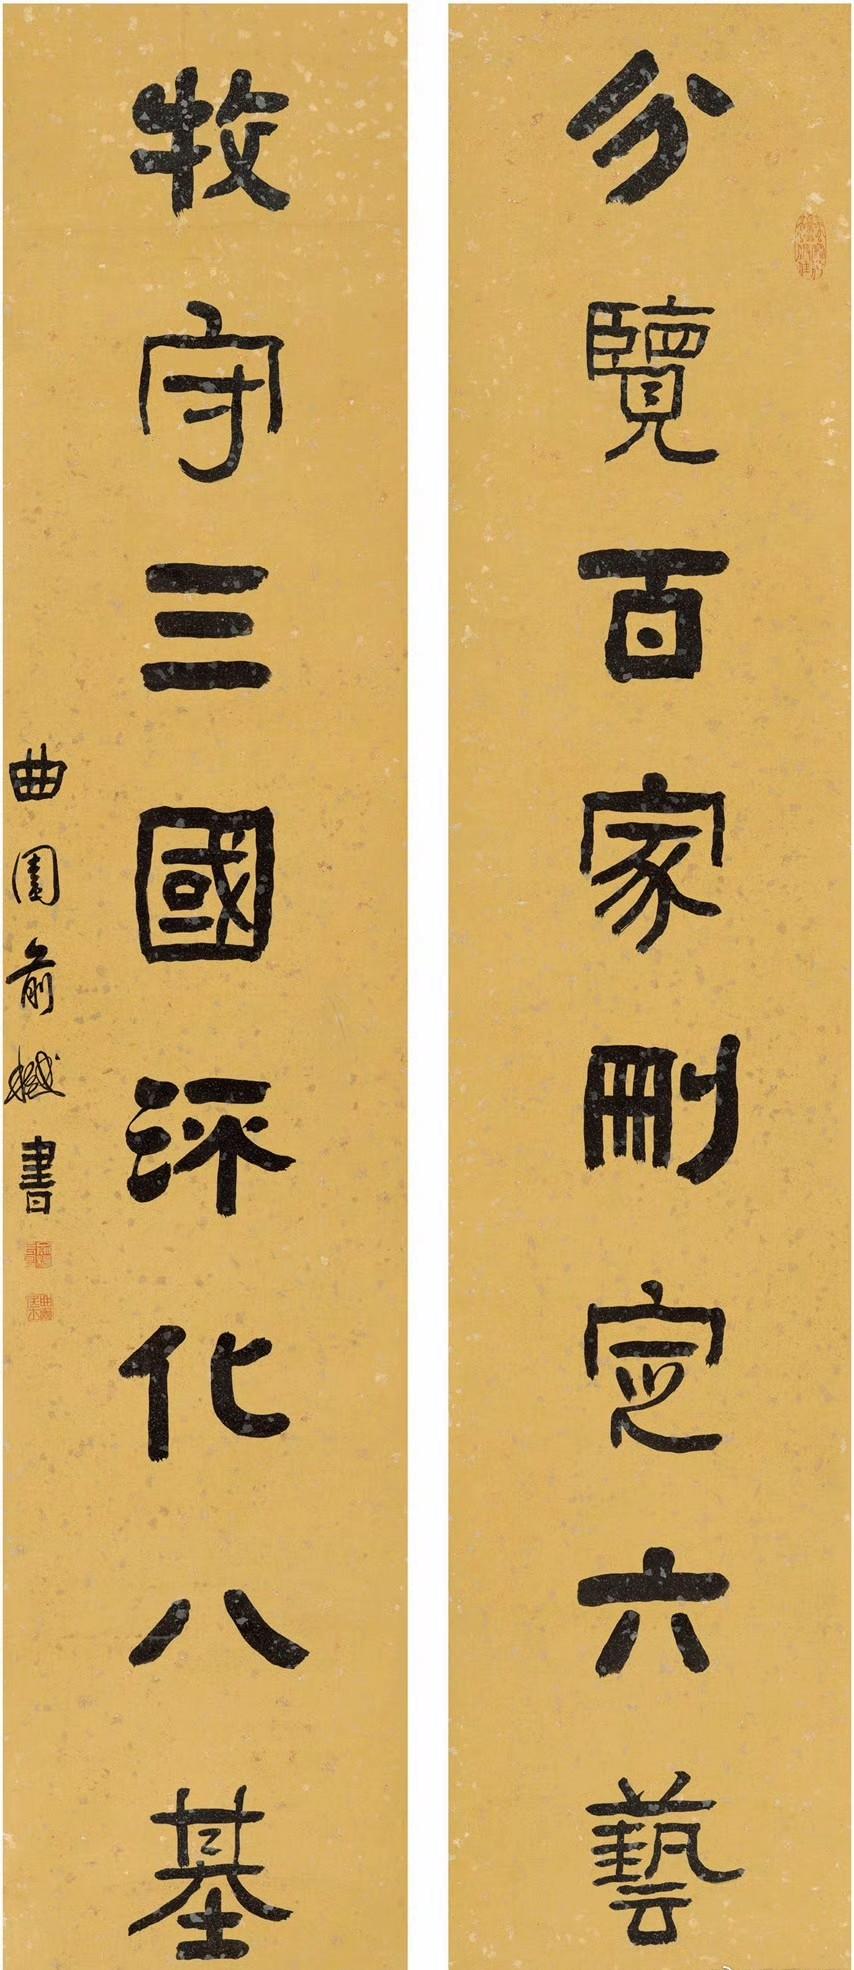 分覽百家刪定六藝
牧守三國流化八基
曲園俞樾書